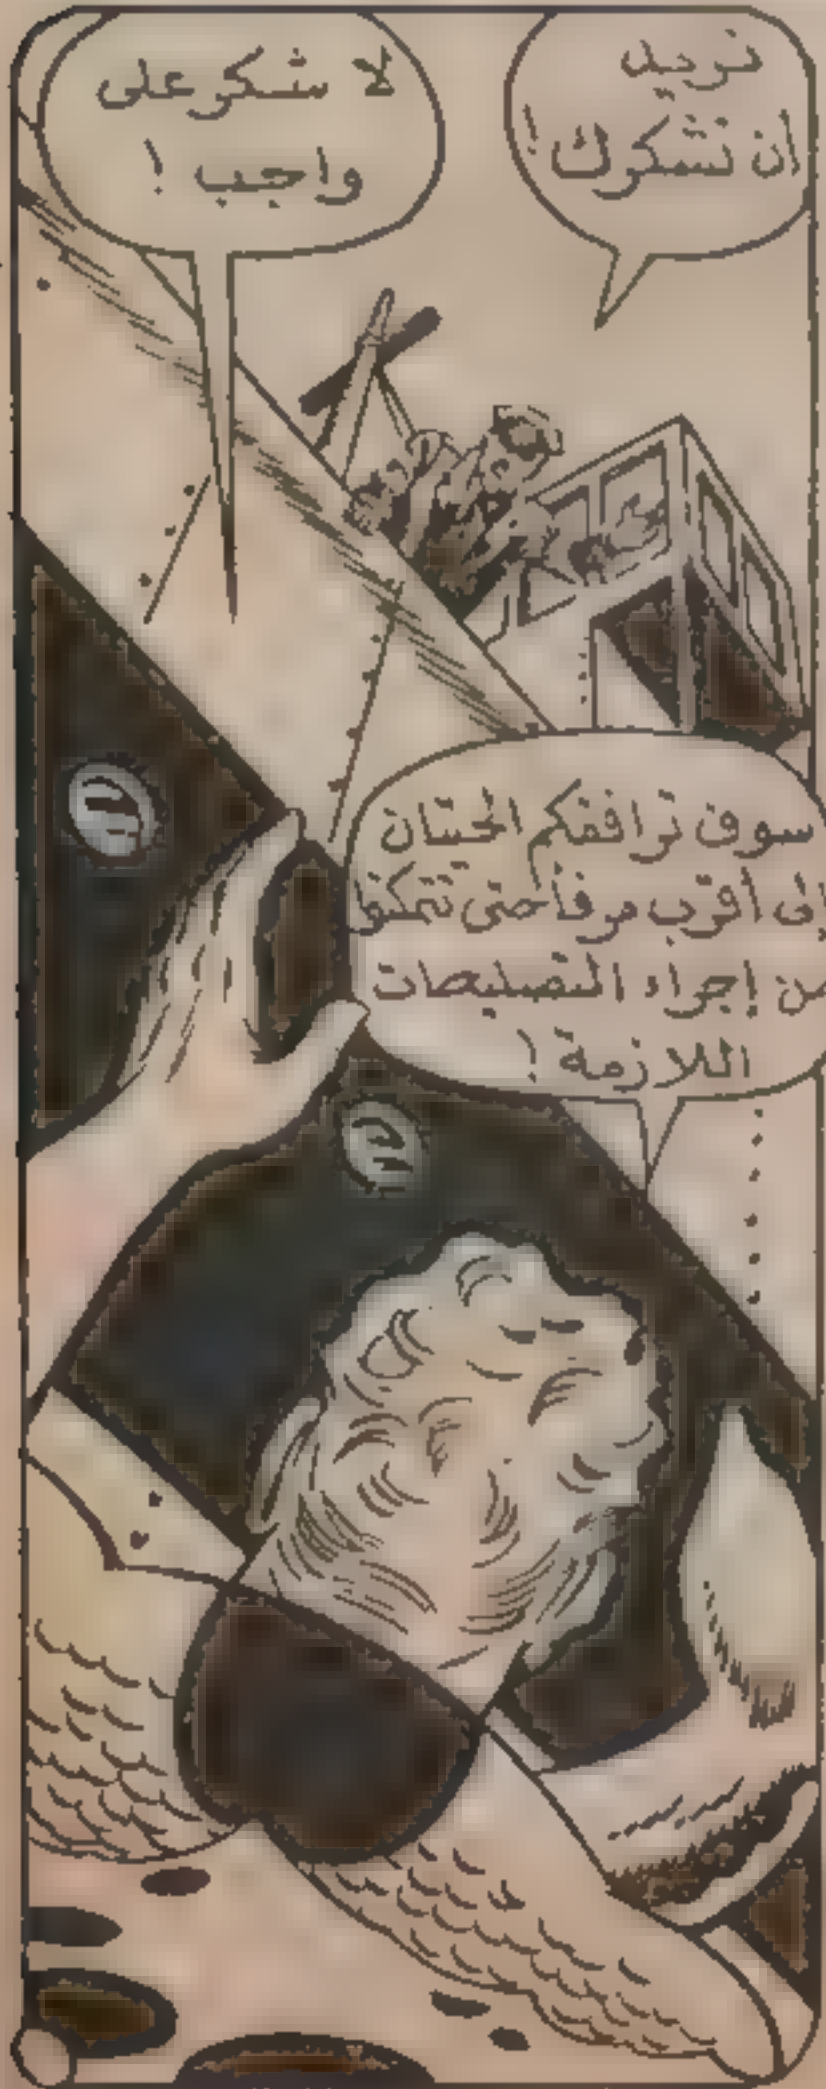 نريد
أن نشكرك !
لا شكر على
واجب !
سوف ترافقكم الحيتان
إلى أقرب مرفأ حتى تتمكنوا
من إجراء التصليحات
اللازمة !